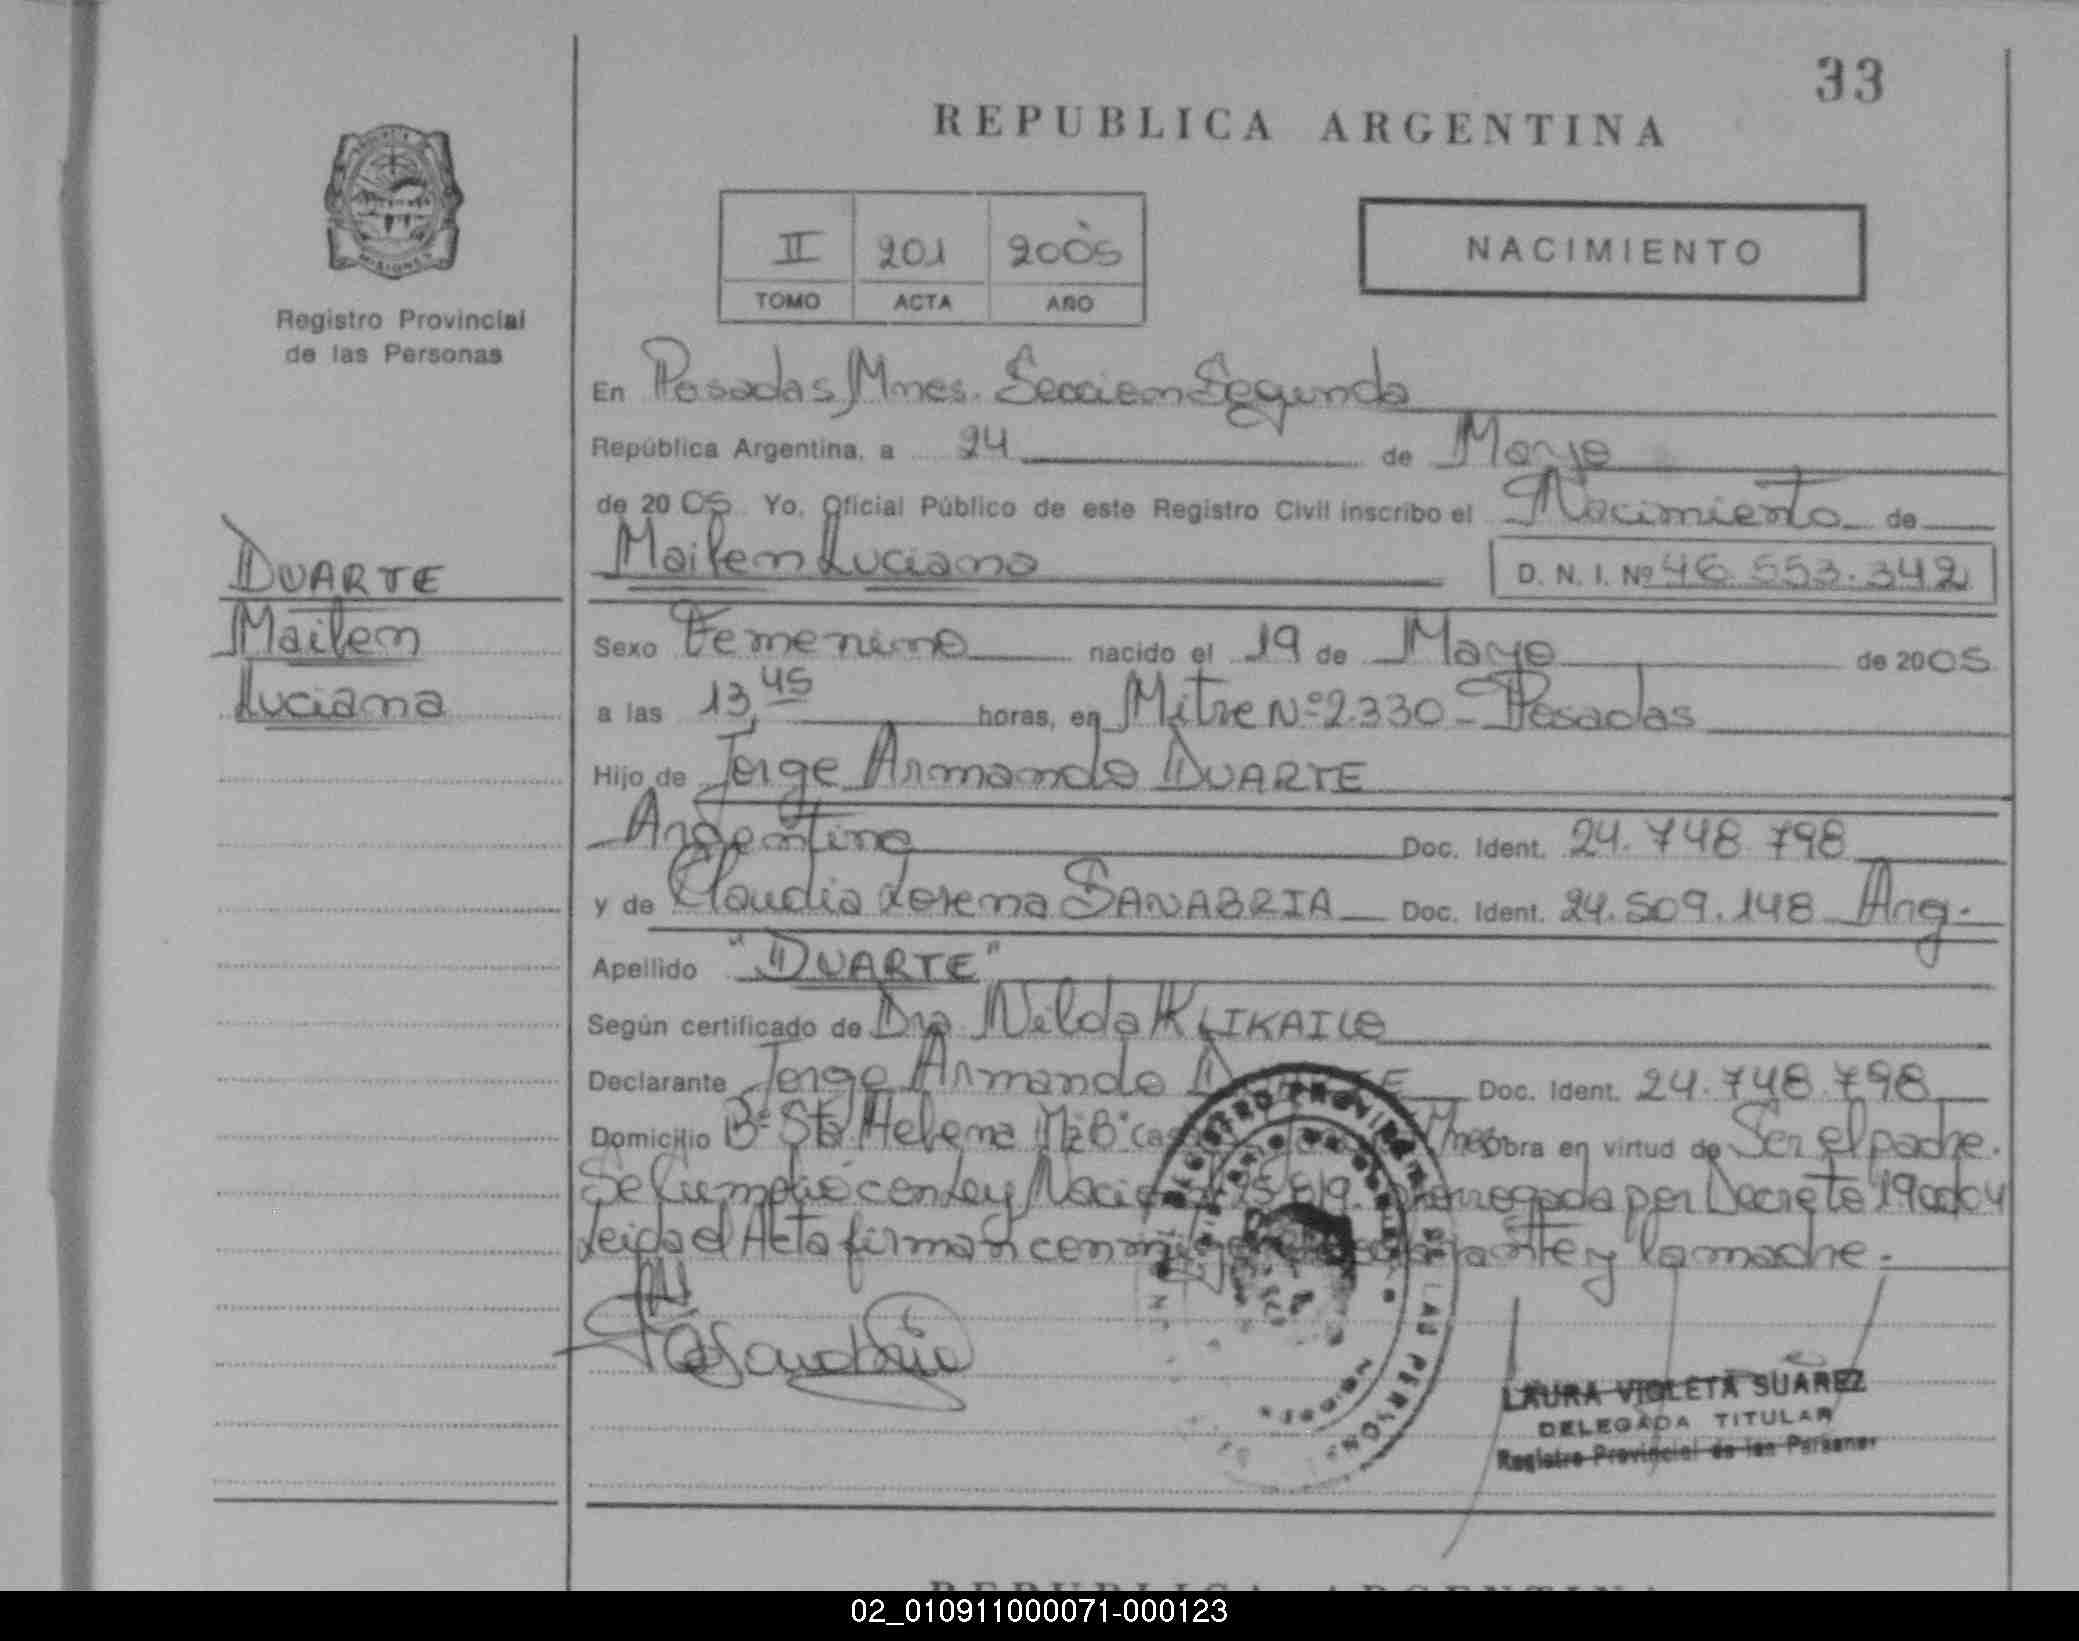 33
REPUBLICA ARGENTINA
MISIONES
Registro Provincial
de las Personas
II 201 2005
TOMO ACTA AÑO
NACIMIENTO
En Posadas, Mnes. Seccion Segunda
República Argentina, a 24 de Mayo
de 2005 Yo, Oficial Público de este Registro Civil inscribo el Nacimiento de
Mailen Luciana D. N. I. Nº 46.553.342
DUARTE
Mailen
Luciana
Sexo Femenino nacido el 19 de Mayo de 2005
a las 13,45 horas, en Mitre Nº 2.330 - Posadas
Hijo de Jorge Armando DUARTE
Argentino Doc. Ident. 24.748.798
y de Claudia Lorena SANABRIA Doc. Ident. 24.509.148 Arg.
Apellido "DUARTE"
Según certificado de Dra. Nilda KLIKAILO
Declarante Jorge Armando DUARTE Doc. Ident. 24.748.798
Domicilio Bº Sta Helena Mz B Mnes obra en virtud de Ser el padre.
Se Cumplió con Ley prorrogada por Decreto
Leida el Acta firman conmigo y la madre.
REGISTRO PROVINCIAL DE LAS PERSONAS
LAURA VIOLETA SUAREZ
DELEGADA TITULAR
Registro Provincial de las Personas
REPUBLICA ARGENTINA
02_010911000071-000123